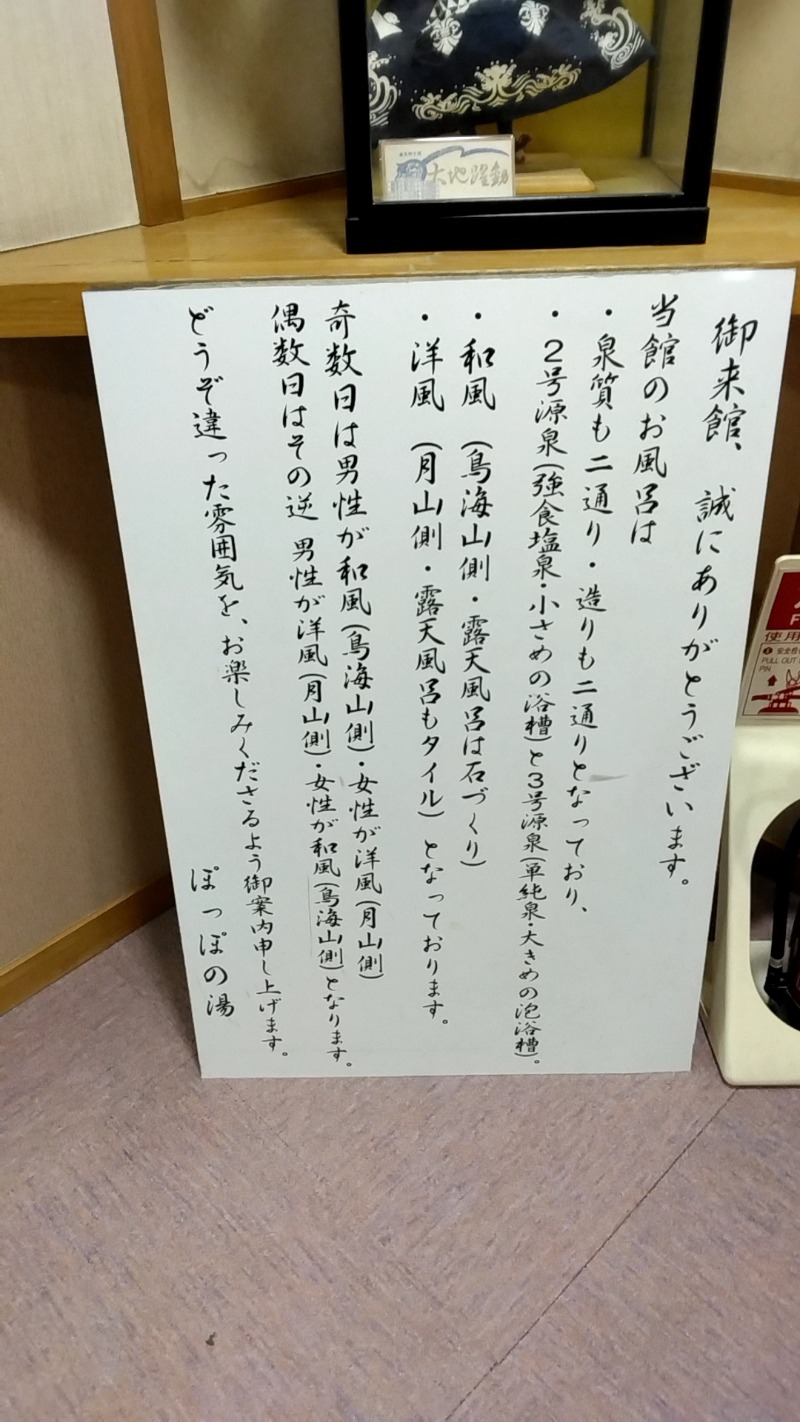 大地躍動
御来館、誠にありがとうございます。
当館のお風呂は
・泉質も二通り・造りも二通りとなっており、
・2号源泉(強食塩泉・小さめの浴槽)と3号源泉(単純泉・大きめの泡浴槽)。
・和風(鳥海山側・露天風呂は石づくり)
・洋風(月山側・露天風呂もタイル)となっております。
奇数日は男性が和風(鳥海山側)・女性が洋風(月山側)
偶数日はその逆 男性が洋風(月山側)・女性が和風(鳥海山側)となります。
どうぞ違った雰囲気を、お楽しみくださるよう御案内申し上げます。
ぽっぽの湯
使用
PULL OUT
PIN